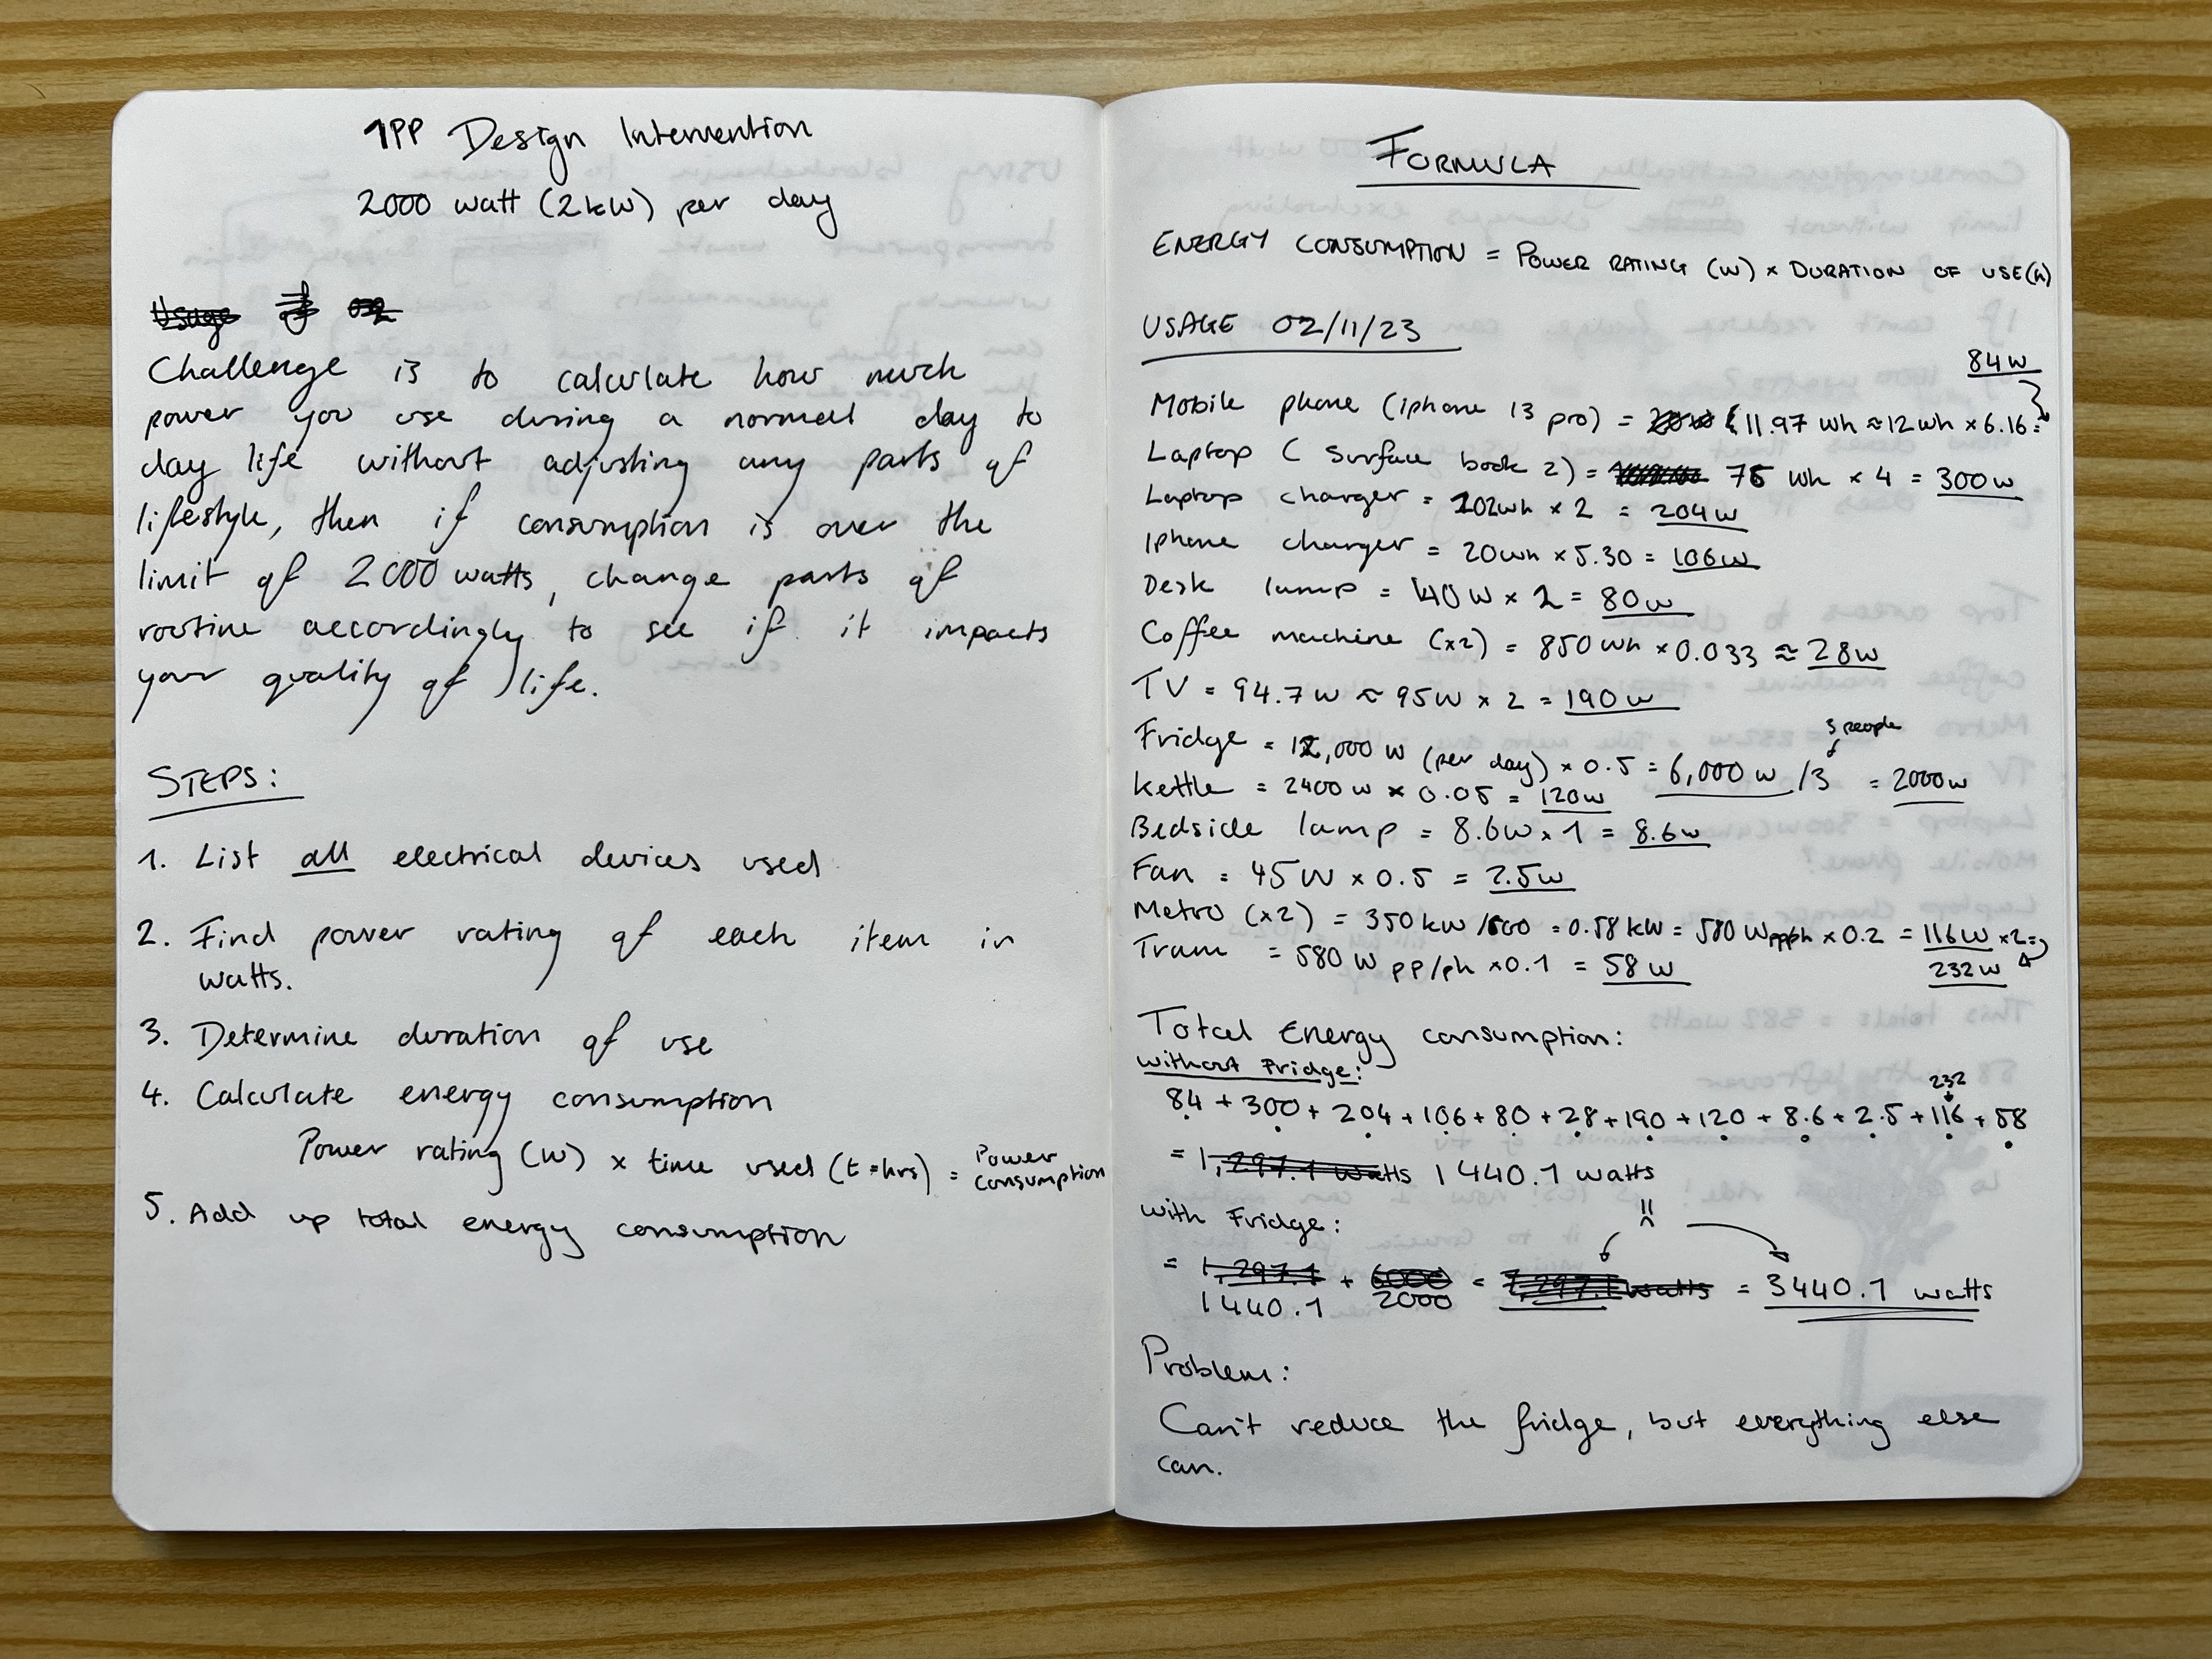 1PP Design Intervention
2000 watt (2kW) per day
Usage of
Challenge is to calculate how much
power you use during a normal day to
day life without adjusting any parts of
lifestyle, then if consumption is over the
limit of 2000 watts, change parts of
routine accordingly to see if it impacts
your quality of life.
STEPS:
1. List all electrical devices used
2. Find power rating of each item in
watts.
3. Determine duration of use
4. Calculate energy consumption
Power rating (W) × time used (t=hrs) = Power
consumption
5. Add up total energy consumption
FORMULA
ENERGY CONSUMPTION = POWER RATING (W) × DURATION OF USE(h)
USAGE 02/11/23
84w
Mobile phone (iphone 13 pro) = 11.97 Wh ≈ 12 wh × 6.16 =
Laptop (Surface book 2) = 75 Wh × 4 = 300w
Laptop charger = 102wh × 2 = 204w
Iphone charger = 20wh × 5.30 = 106w
Desk lamp = 40W × 2 = 80w
Coffee machine (×2) = 850wh × 0.033 ≈ 28w
TV = 94.7w ≈ 95W × 2 = 190w
3 people
Fridge = 12,000 w (per day) × 0.5 = 6,000 w /3 = 2000w
Kettle = 2400w × 0.05 = 120w
Bedside lamp = 8.6w × 1 = 8.6w
Fan = 45W × 0.5 = 2.5w
Metro (×2) = 350kw /600 = 0.58kW = 580 Wpp/ph × 0.2 = 116w ×2=
232w
Tram = 580 W pp/ph × 0.1 = 58w
Total Energy consumption:
without Fridge:
232
84 + 300 + 204 + 106 + 80 + 28 + 190 + 120 + 8.6 + 2.5 + 116 + 58
= 1,297.1 watts 1440.1 watts
with Fridge:
!!
= 1,297.1 + 6000 = 7,297.1 watts = 3440.1 watts
1440.1 2000
Problem:
Can't reduce the fridge, but everything else
can.